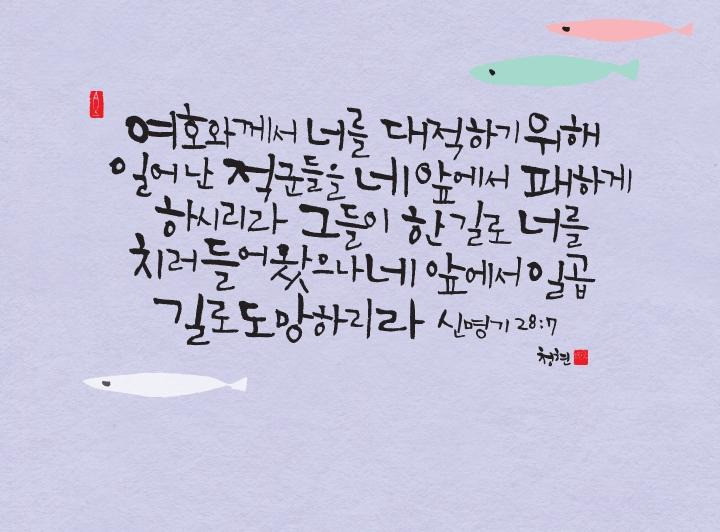 여호와께서 너를 대적하기 위해
일어난 적군들을 네 앞에서 패하게
하시리라 그들이 한 길로 너를
치러 들어왔으나 네 앞에서 일곱
길로 도망하리라 신명기 28:7
청현